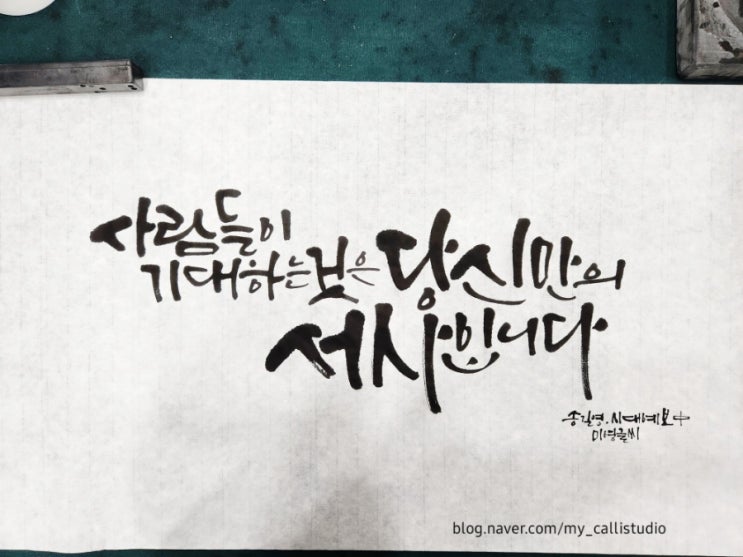 사람들이
기대하는 것은 당신만의
서사입니다
송길영. 시대예보 中
미영글씨
blog.naver.com/my_callistudio